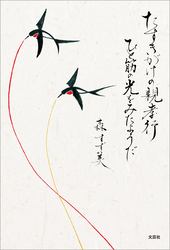 たすきがけの親孝行
ひと筋の光をみたようだ
森ます美
文芸社